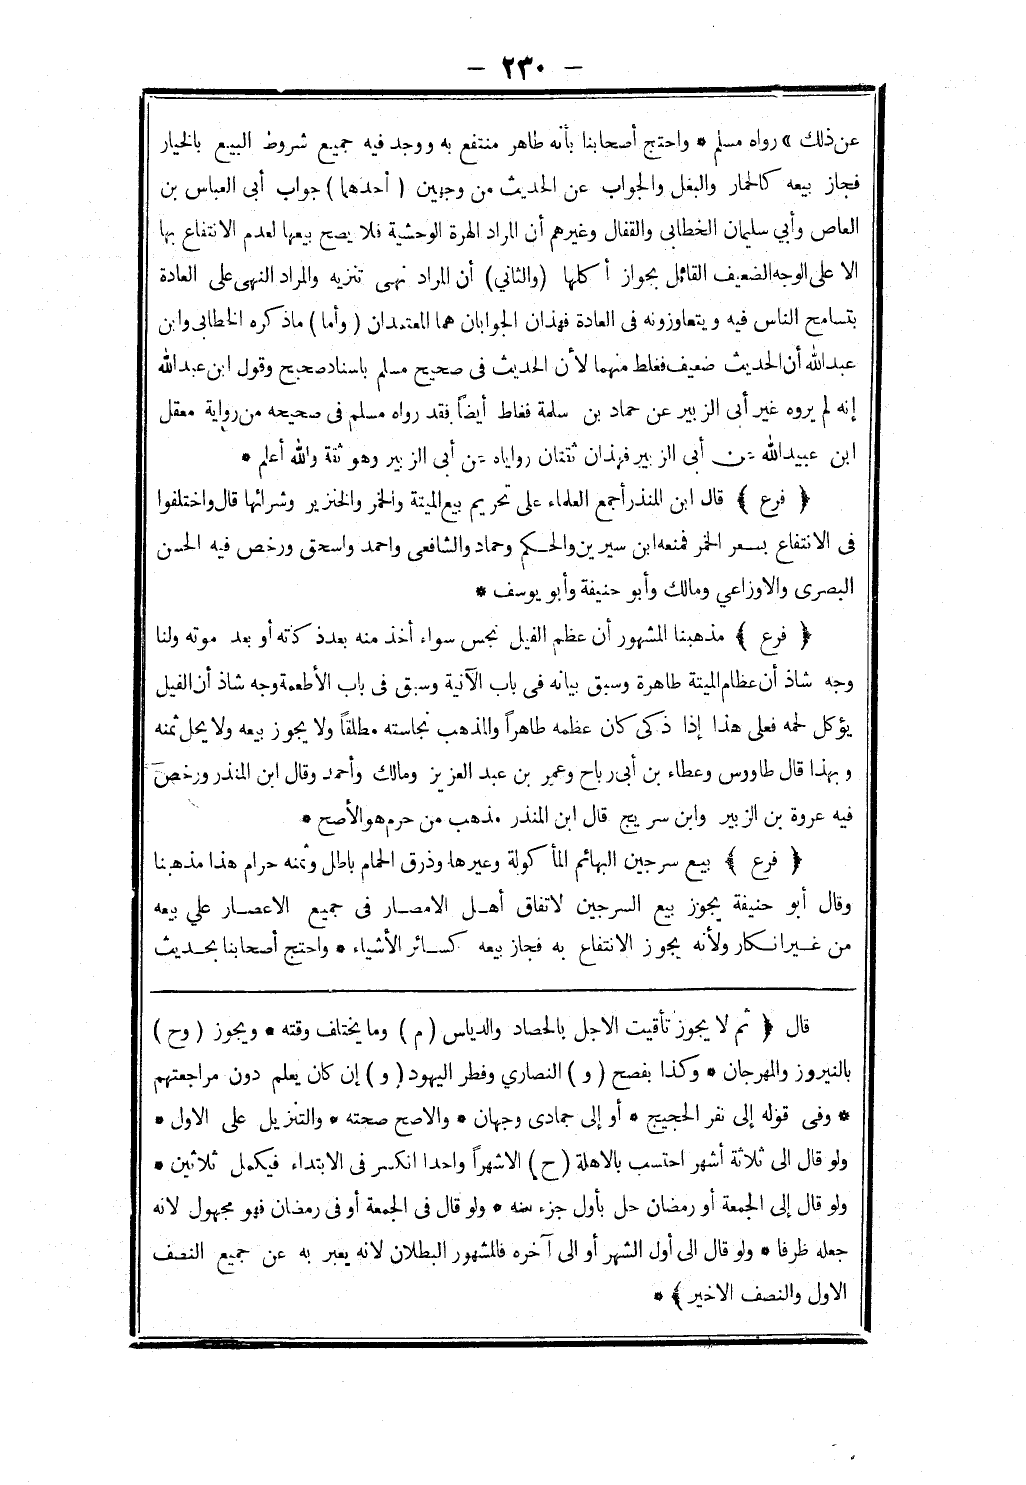 — ٢٣٠ —
عن ذلك » رواه مسلم * واحتج أصحابنا بأنه طاهر منتفع به ووجد فيه جميع شروط البيع بالخيار
فجاز بيعه كالحمار والبغل والجواب عن الحديث من وجهين ( أحدهما ) جواب أبى العباس بن
العاص وأبي سليمان الخطابى والقفال وغيرهم أن المراد الهرة الوحشية فلا يصح بيعها لعدم الانتفاع بها
الا على الوجه الضعيف القائل بجواز أكلها (والثاني) أن المراد نهى تنزيه والمراد النهى على العادة
بتسامح الناس فيه ويتعاوزونه فى العادة فهذان الجوابان هما المعتمدان ( وأما ) ماذكره الخطابى وابن
عبدالله أن الحديث ضعيف فغلط منهما لأن الحديث فى صحيح مسلم باسناد صحيح وقول ابن عبدالله
إنه لم يروه غير أبى الزبير عن حماد بن سلمة فغلط أيضاً فقد رواه مسلم فى صحيحه من رواية معقل
ابن عبيدالله عن أبى الزبير فهذان ثقتان روياه عن أبى الزبير وهو ثقة والله أعلم *
﴿ فرع ﴾ قال ابن المنذر أجمع العلماء على تحريم بيع الميتة والخمر والخنزير وشرائها قال واختلفوا
فى الانتفاع بسعر الخمر فمنعه ابن سيرين والحكم وحماد والشافعى واحمد واسحق ورخص فيه الحسن
البصرى والاوزاعي ومالك وأبو حنيفة وأبو يوسف *
﴿ فرع ﴾ مذهبنا المشهور أن عظم الفيل نجس سواء أخذ منه بعد ذكاته أو بعد موته ولنا
وجه شاذ أن عظام الميتة طاهرة وسبق بيانه فى باب الآنية وسبق فى باب الأطعمة وجه شاذ أن الفيل
يؤكل لحمه فعلى هذا إذا ذكى كان عظمه طاهراً والمذهب نجاسته مطلقاً ولا يجوز بيعه ولا يحل ثمنه
وبهذا قال طاووس وعطاء بن أبى رباح وعمر بن عبد العزيز ومالك وأحمد وقال ابن المنذر ورخص
فيه عروة بن الزبير وابن سريج قال ابن المنذر مذهب من حرم هو الأصح *
﴿ فرع ﴾ بيع سرجين البهائم المأكولة وغيرها وذرق الحمام باطل وثمنه حرام هذا مذهبنا
وقال أبو حنيفة يجوز بيع السرجين لاتفاق أهل الامصار فى جميع الاعصار علي بيعه
من غير انكار ولأنه يجوز الانتفاع به فجاز بيعه كسائر الأشياء * واحتج أصحابنا بحديث
قال ﴿ ثم لا يجوز تأقيت الاجل بالحصاد والدياس ( م ) وما يختلف وقته * ويجوز ( وح )
بالنيروز والمهرجان * وكذا بفصح ( و ) النصاري وفطر اليهود ( و ) إن كان يعلم دون مراجعتهم
* وفى قوله إلى نفر الحجيج * أو إلى جمادى وجهان * والاصح صحته * والتنزيل على الاول *
ولو قال الى ثلاثة أشهر احتسب بالاهلة ( ح ) الا شهراً واحدا انكسر فى الابتداء فيكمل ثلاثين *
ولو قال إلى الجمعة أو رمضان حل بأول جزء منه * ولو قال فى الجمعة أو فى رمضان فهو مجهول لانه
جعله ظرفا * ولو قال الى أول الشهر أو الى آخره فالمشهور البطلان لانه يعبر به عن جميع النصف
الاول والنصف الاخير ﴾ *